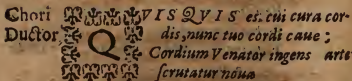 Chori QVIS QVIS es, cui cura cor-
Ductor dis, nunc tuo cordi caue;
Cordium Venator ingens arte
scrutatur noua